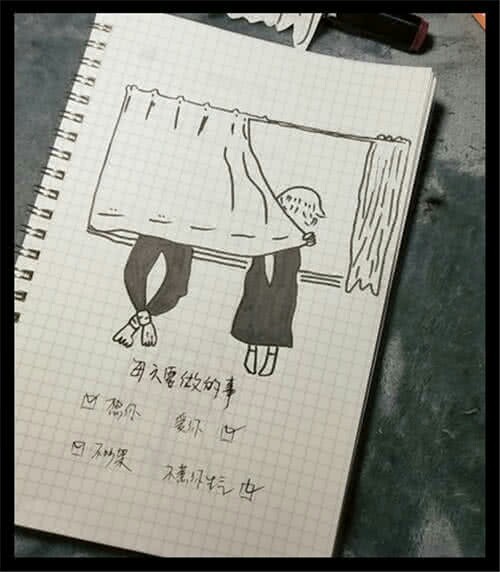 每天要做的事
想你 爱你
不吵架
不惹你生气